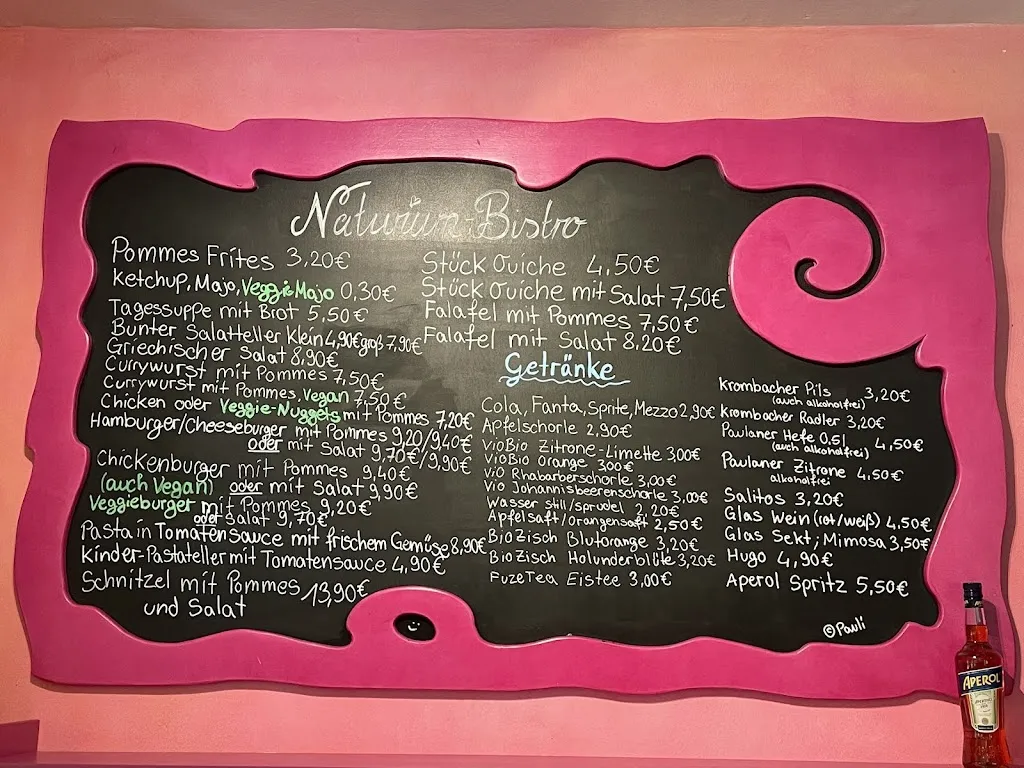 Naturium-Bistro
Pommes Frites 3,20€
Ketchup, Majo, Veggie Majo 0,30€
Tagessuppe mit Brot 5,50€
Bunter Salatteller Klein 4,90€ groß 7,90€
Griechischer Salat 8,90€
Currywurst mit Pommes 7,50€
Currywurst mit Pommes, Vegan 7,50€
Chicken oder Veggie-Nuggets mit Pommes 7,20€
Hamburger/Cheeseburger mit Pommes 9,20/9,40€
oder mit Salat 9,70€/9,90€
Chickenburger mit Pommes 9,40€
(auch Vegan) oder mit Salat 9,90€
Veggieburger mit Pommes 9,20€
oder Salat 9,70€
Pasta in Tomatensauce mit frischem Gemüse 8,90€
Kinder-Pastateller mit Tomatensauce 4,90€
Schnitzel mit Pommes 13,90€
und Salat
Stück Quiche 4,50€
Stück Quiche mit Salat 7,50€
Falafel mit Pommes 7,50€
Falafel mit Salat 8,20€
Getränke
Cola, Fanta, Sprite, Mezzo 2,90€
Apfelschorle 2,90€
VioBio Zitrone-Limette 3,00€
VioBio Orange 3,00€
ViO Rhabarberschorle 3,00€
ViO Johannisbeerenschorle 3,00€
Wasser still/sprudel 2,20€
Apfelsaft/Orangensaft 2,50€
BioZisch Blutorange 3,20€
BioZisch Holunderblüte 3,20€
FuzeTea Eistee 3,00€
Krombacher Pils 3,20€
(auch alkoholfrei)
Krombacher Radler 3,20€
Paulaner Hefe 0,5l 4,50€
(auch alkoholfrei)
Paulaner Zitrone 4,50€
alkoholfrei
Salitos 3,20€
Glas Wein (rot/weiß) 4,50€
Glas Sekt; Mimosa 3,50€
Hugo 4,90€
Aperol Spritz 5,50€
©Pauli
APEROL